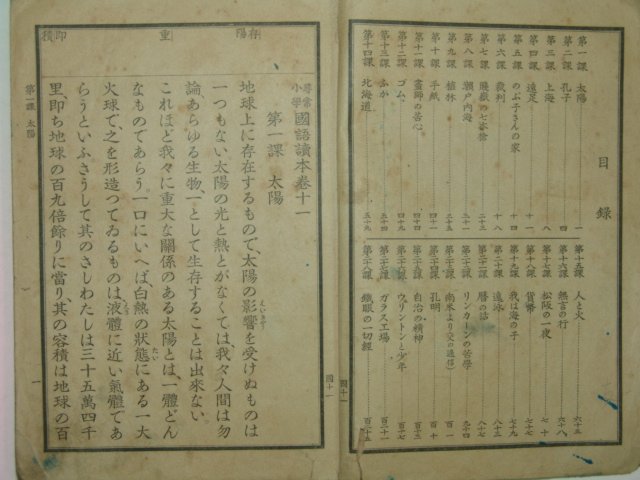 目録
第一課 太陽 一
第二課 孔子 四
第三課 上海 八
第四課 遠足 十一
第五課 のぶ子さんの家 十四
第六課 裁判 十八
第七課 賤嶽の七本槍 二十三
第八課 瀬戸内海
第九課 植林
第十課 手紙 四十一
第十一課 畫師の苦心
第十二課 ゴム 四十九
第十三課 ふか
第十四課 北海道 五十九
第十五課 人と火 六十五
第十六課 無言の行 六十八
第十七課 松阪の一夜
第十八課 貨幣
第十九課 我は海の子 七十九
第二十課 遠泳 八十三
第二十一課 暦の話 八十七
第二十二課 リンカーンの苦學 九十四
第二十三課 南米より(父の通信) 百一
第二十四課 孔明 百十
第二十五課 自治の精神
第二十六課 ウェリントンと少年 百十七
第二十七課 ガラス工場 百二十一
第二十八課 鐵眼の一切經 百二十五
國十一
國十一
存陽
重
即積
尋常小學 國語讀本卷十一
第一課 太陽
地球上に存在するもので、太陽の影響を受けぬものは
一つもない。太陽の光と熱とがなくては、我々人間は勿
論、あらゆる生物、一として生存することは出來ない。
これほど我々に重大な關係のある太陽とは、一體どん
なものであらう。一口にいへば、白熱の狀態にある一大
火球で、之を形造つてゐるものは、液體に近い氣體であ
らうといふ。さうして其のさしわたしは三十五萬四千
里、即ち地球の百九倍餘りに當り、其の容積は地球の百
第一課 太陽
一